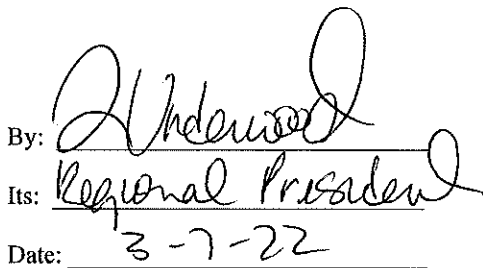 By: Underwood
Its: Regional President
Date: 3-7-22